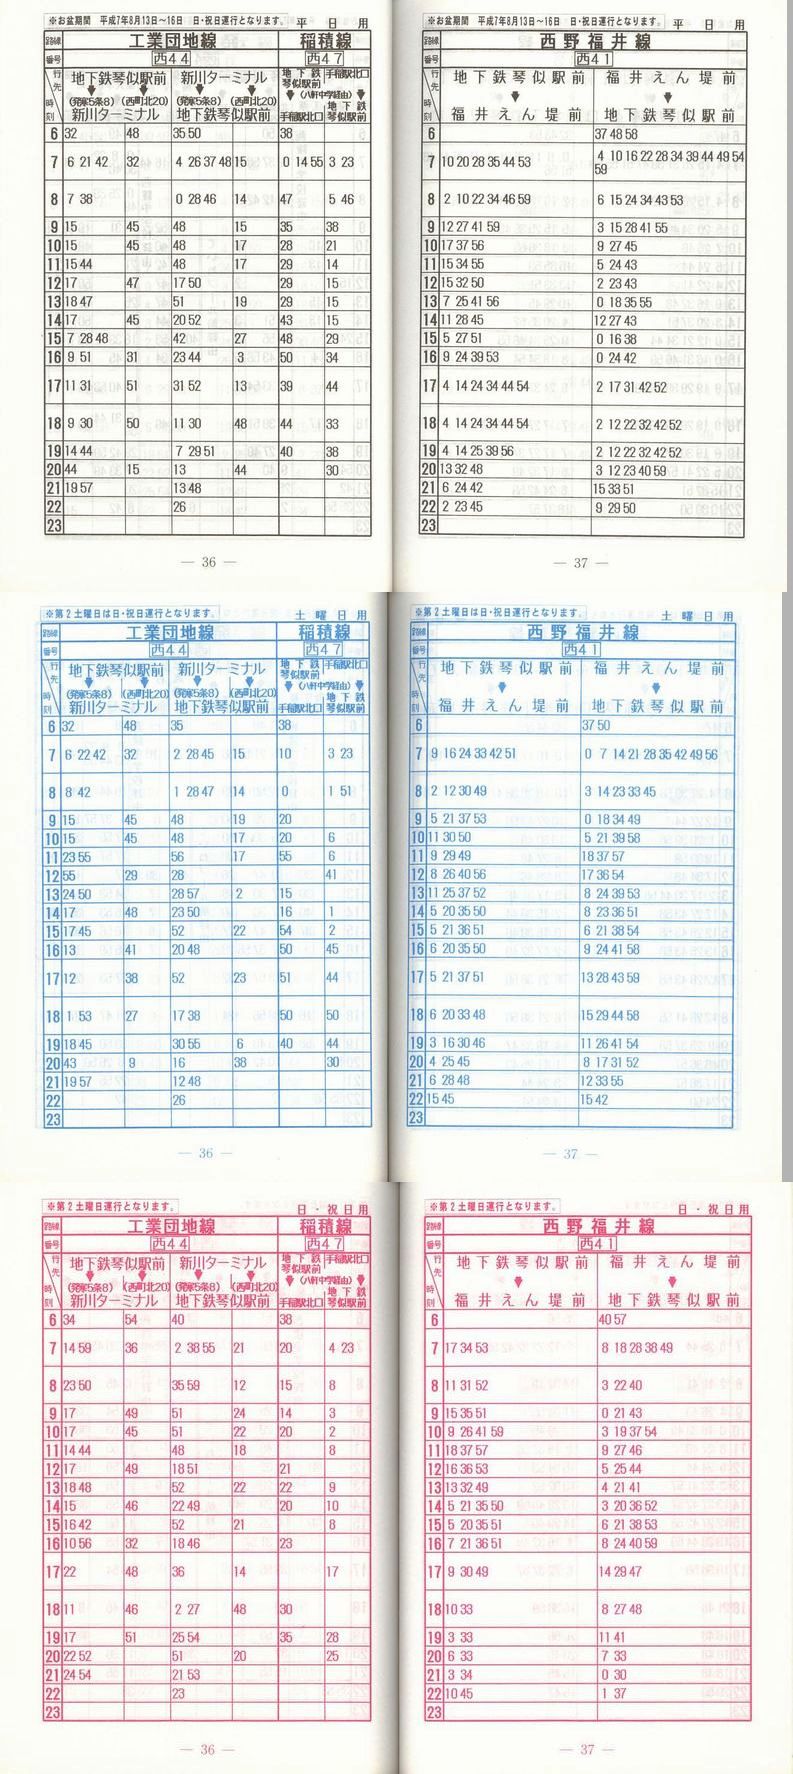 ※お盆期間 平成7年8月13日～16日 日・祝日運行となります。 平日用
路線 工業団地線 稲積線
番号 西44 西47
行先 地下鉄琴似駅前 新川ターミナル 地下鉄琴似駅前 手稲駅北口
(発寒5条8) (西町北20) (発寒5条8) (西町北20) (八軒中学経由)
時刻 新川ターミナル 地下鉄琴似駅前 手稲駅北口 地下鉄琴似駅前
6 32 48 35 50 38
7 6 21 42 32 4 26 37 48 15 0 14 55 3 23
8 7 38 0 28 46 14 47 5 46
9 15 45 48 15 35 38
10 15 45 48 17 28 21
11 15 44 48 17 29 14
12 17 47 17 50 29 15
13 18 47 51 19 29 15
14 17 45 20 52 43 15
15 7 28 48 42 27 48 29
16 9 51 31 23 44 3 50 34
17 11 31 51 31 52 13 39 44
18 9 30 50 11 30 48 44 33
19 14 44 7 29 51 40 38
20 44 15 13 44 30
21 19 57 13 48
22 26
23
― 36 ―
※お盆期間 平成7年8月13日～16日 日・祝日運行となります。 平日用
路線 西野福井線
番号 西41
行先 地下鉄琴似駅前 福井えん堤前
時刻 福井えん堤前 地下鉄琴似駅前
6 37 48 58
7 10 20 28 35 44 53 4 10 16 22 28 34 39 44 49 54
59
8 2 10 22 34 46 59 6 15 24 34 43 53
9 12 27 41 59 3 15 28 41 55
10 17 37 56 9 27 45
11 15 34 55 5 24 43
12 15 32 50 2 23 43
13 7 25 41 56 0 18 35 55
14 11 28 45 12 27 43
15 5 27 51 0 16 38
16 9 24 39 53 0 24 42
17 4 14 24 34 44 54 2 17 31 42 52
18 4 14 24 34 44 54 2 12 22 32 42 52
19 4 14 25 39 56 2 12 22 32 42 52
20 13 32 48 3 12 23 40 59
21 6 24 42 15 33 51
22 2 23 45 9 29 50
23
― 37 ―
※第2土曜日は日・祝日運行となります。 土曜日用
路線 工業団地線 稲積線
番号 西44 西47
行先 地下鉄琴似駅前 新川ターミナル 地下鉄琴似駅前 手稲駅北口
(発寒5条8) (西町北20) (発寒5条8) (西町北20) (八軒中学経由)
時刻 新川ターミナル 地下鉄琴似駅前 手稲駅北口 地下鉄琴似駅前
6 32 48 35 38
7 6 22 42 32 2 28 45 15 10 3 23
8 8 42 1 28 47 14 0 1 51
9 15 45 48 19 20
10 15 45 48 17 20 6
11 23 55 56 17 55 6
12 55 29 28 41
13 24 50 28 57 2 15
14 17 48 23 50 16 1
15 17 45 52 22 54 2
16 13 41 20 48 50 45
17 12 38 52 23 51 44
18 1 53 27 17 38 50 50
19 18 45 30 55 6 40 44
20 43 9 16 38 30
21 19 57 12 48
22 26
23
― 36 ―
※第2土曜日は日・祝日運行となります。 土曜日用
路線 西野福井線
番号 西41
行先 地下鉄琴似駅前 福井えん堤前
時刻 福井えん堤前 地下鉄琴似駅前
6 37 50
7 9 16 24 33 42 51 0 7 14 21 28 35 42 49 56
8 2 12 30 49 3 14 23 33 45
9 5 21 37 53 0 18 34 49
10 11 30 50 5 21 39 58
11 9 29 49 18 37 57
12 8 26 40 56 17 36 54
13 11 25 37 52 8 24 39 53
14 5 20 35 50 8 23 36 51
15 5 21 36 51 6 21 38 54
16 6 20 35 50 9 24 41 58
17 5 21 37 51 13 28 43 59
18 6 20 33 48 15 29 44 58
19 3 16 30 46 11 26 41 54
20 4 25 45 8 17 31 52
21 6 28 48 12 33 55
22 15 45 15 42
23
― 37 ―
※第2土曜日運行となります。 日・祝日用
路線 工業団地線 稲積線
番号 西44 西47
行先 地下鉄琴似駅前 新川ターミナル 地下鉄琴似駅前 手稲駅北口
(発寒5条8) (西町北20) (発寒5条8) (西町北20) (八軒中学経由)
時刻 新川ターミナル 地下鉄琴似駅前 手稲駅北口 地下鉄琴似駅前
6 34 54 40 38
7 14 59 36 2 38 55 21 20 4 23
8 23 50 35 59 12 15 8
9 17 49 51 24 14 3
10 17 45 51 22 20 2
11 14 44 48 18 8
12 17 49 18 51 21
13 18 48 52 22 22 9
14 15 46 22 49 20 10
15 16 42 52 21 8
16 10 56 32 18 46 23
17 22 48 36 14 17
18 11 46 2 27 48 30
19 17 51 25 54 35 28
20 22 52 51 20 25
21 24 54 21 53
22 23
23
― 36 ―
※第2土曜日運行となります。 日・祝日用
路線 西野福井線
番号 西41
行先 地下鉄琴似駅前 福井えん堤前
時刻 福井えん堤前 地下鉄琴似駅前
6 40 57
7 17 34 53 8 18 28 38 49
8 11 31 52 3 22 40
9 15 35 51 0 21 43
10 9 26 41 59 3 19 37 54
11 18 37 57 9 27 46
12 16 36 53 5 25 44
13 13 32 49 4 21 41
14 5 21 35 50 3 20 36 52
15 5 20 35 51 6 21 38 53
16 7 21 36 51 8 24 40 59
17 9 30 49 14 29 47
18 10 33 8 27 48
19 3 33 11 41
20 6 33 7 33
21 3 34 0 30
22 10 45 1 37
23
― 37 ―